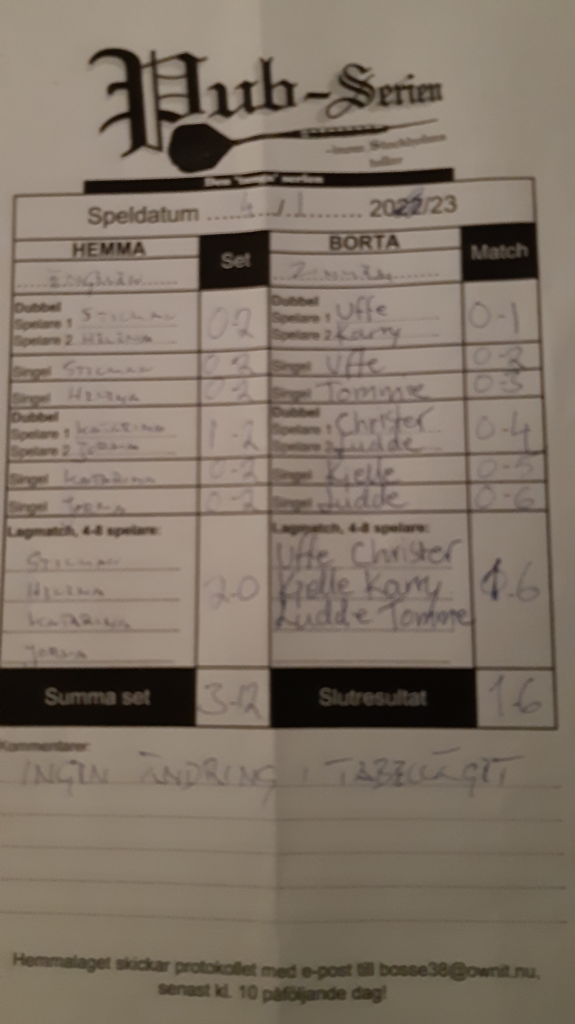 Pub-Serien
Speldatum ...4...1... 2022/23
HEMMA Set BORTA Match
Dubbel Dubbel
Spelare 1 STILMAN 0-2 Spelare 1 Uffe 0-1
Spelare 2 HELENA Spelare 2 Karry
Singel STILMAN 0-2 Singel Uffe 0-2
Singel HELENA 0-2 Singel Tomme 0-3
Dubbel Dubbel
Spelare 1 KATARINA 1-2 Spelare 1 Christer 0-4
Spelare 2 JORMA Spelare 2 Ludde
Singel KATARINA 0-2 Singel Kjelle 0-5
Singel JORMA 0-2 Singel Ludde 0-6
Lagmatch, 4-8 spelare: Lagmatch, 4-8 spelare:
STILMAN 2-0 Uffe Christer 1-6
HELENA Kjelle Karry
KATARINA Ludde Tomme
JORMA
Summa set 3-12 Slutresultat 1-6
Kommentarer:
INGEN ÄNDRING I TABELLÄGET
Hemmalaget skickar protokollet med e-post till bosse38@ownit.nu,
senast kl. 10 påföljande dag!